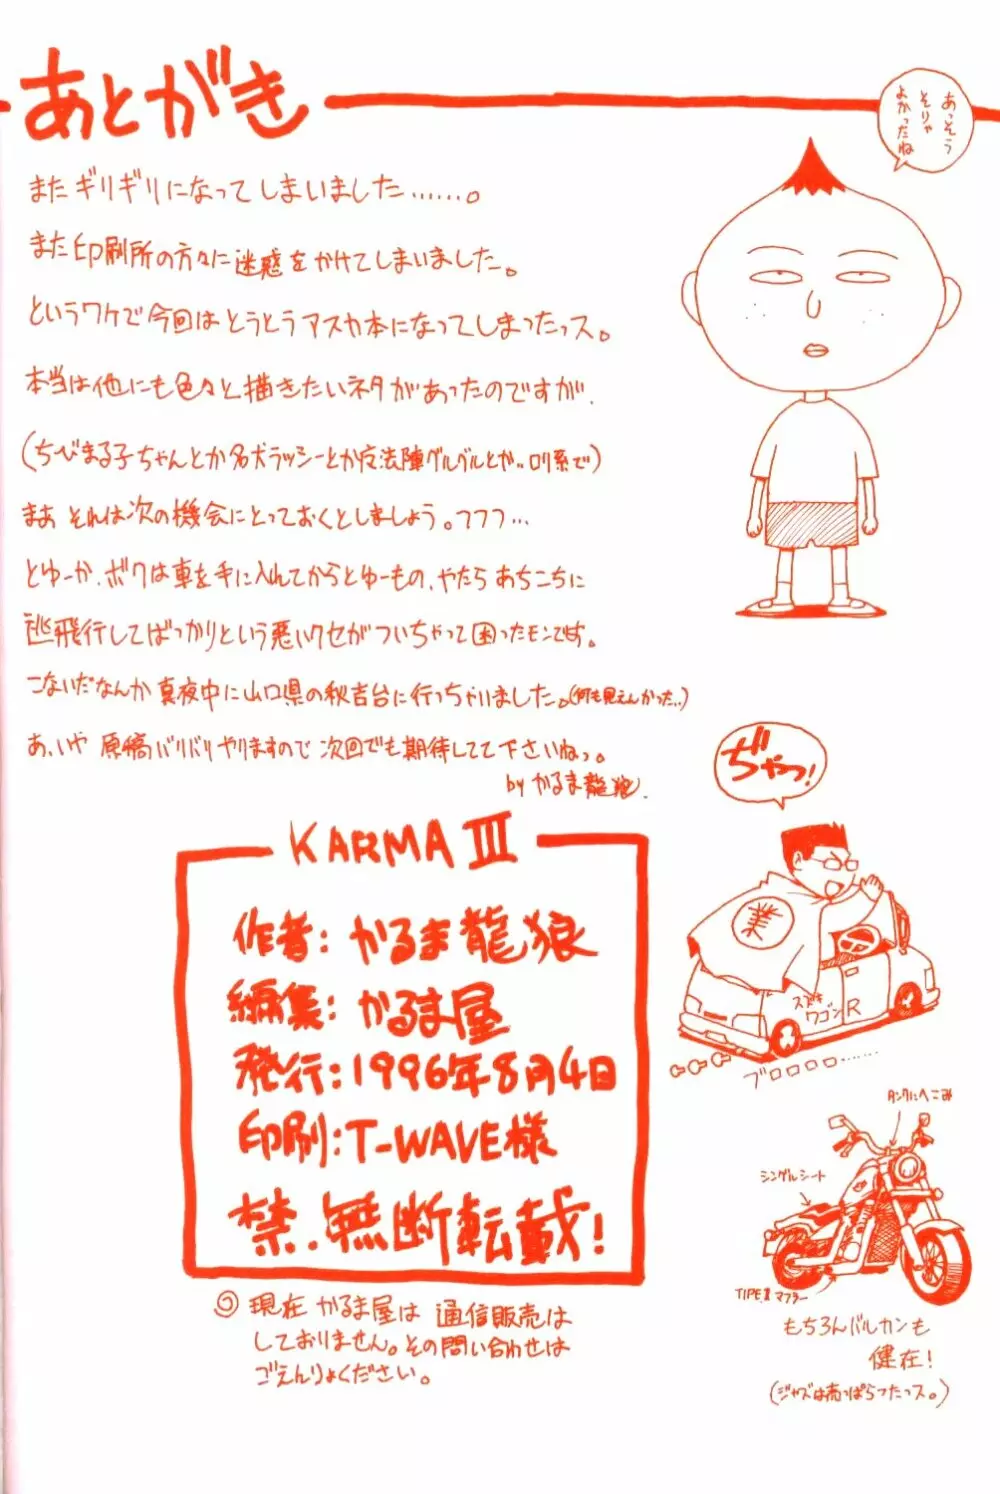 あとがき
あっそう
そりゃ
よかったね
またギリギリになってしまいました……。
また印刷所の方々に迷惑をかけてしまいました。
というワケで今回はとうとうアスカ本になってしまったっス。
本当は他にも色々と描きたいネタがあったのですが、
(ちびまる子ちゃんとか名犬ラッシーとか
法陣グルグルとか‥ロリ系で)
まぁ それは次の機会にとっておくとしましょう。フフフ…
とゆーか、ボクは車を手に入れてからとゆーもの、やたら あちこちに
逃飛行してばっかりという悪いクセがついちゃって困ったモンです。
こないだなんか真夜中に山口県の秋吉台に行っちゃいました。(何も見えんかった‥)
あ、いや 原稿バリバリやりますので 次回でも期待してて下さいねっ。
by かるま龍狼.
ぢゃっ!
KARMA III
作者: かるま龍狼
編集: かるま屋
発行: 1996年8月4日
印刷: T-WAVE様
禁.無断転載!
現在 かるま屋は 通信販売は
しておりません。その問い合わせは
ごえんりょください。
業
スズキ
ワゴンR
ブロロロロ……
タンクにヘこみ
シングルシート
TIPE II マフラー
もちろんバルカンも
健在!
(ジャズは売っぱらったっス。)